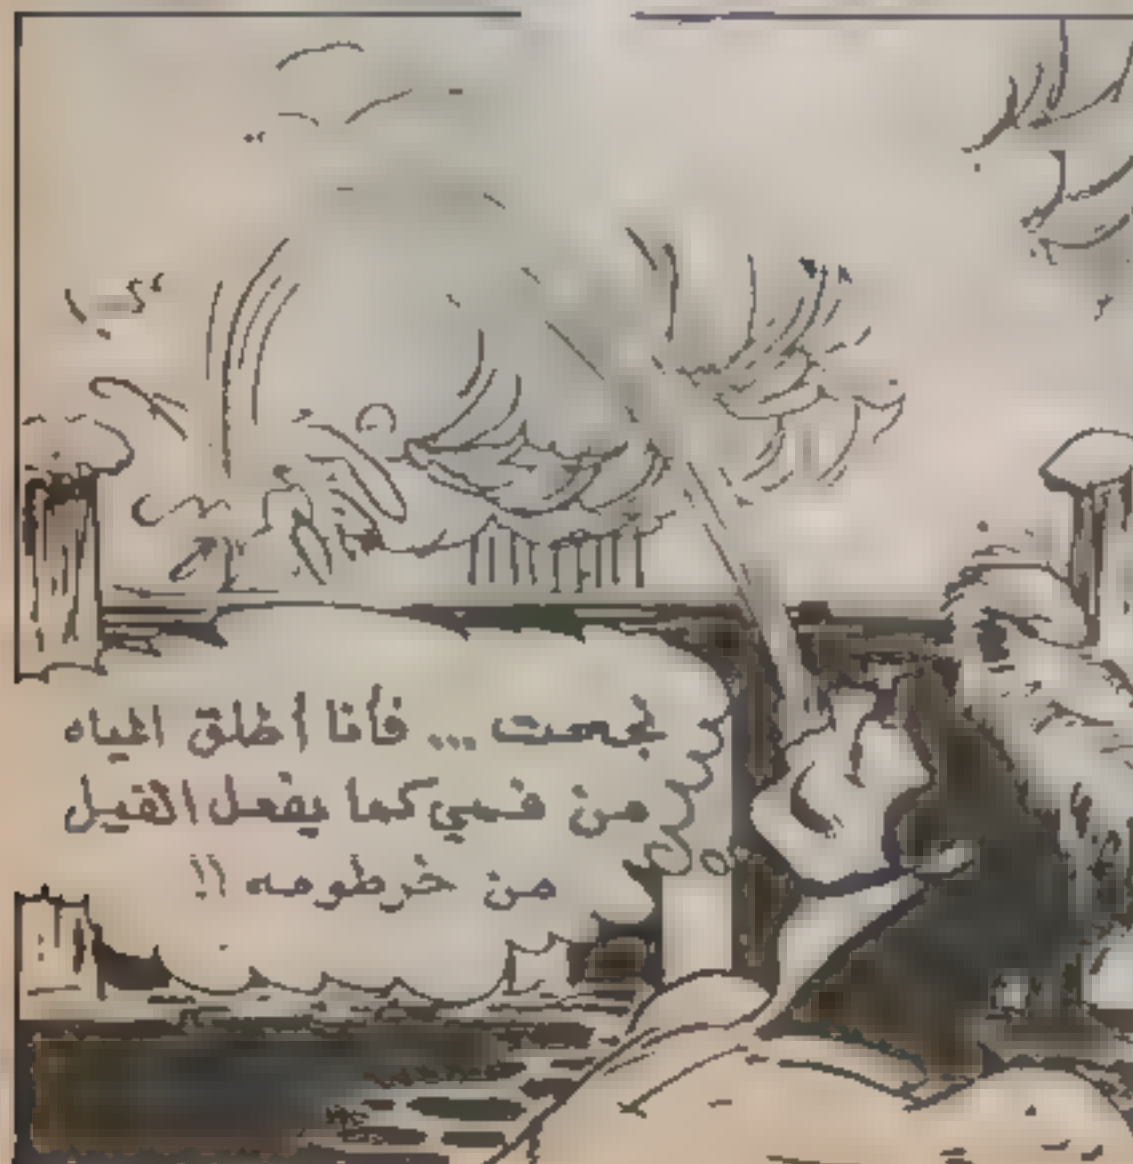 نجحت ... فأنا أطلق المياه
من فمي كما يفعل الفيل
من خرطومه !!